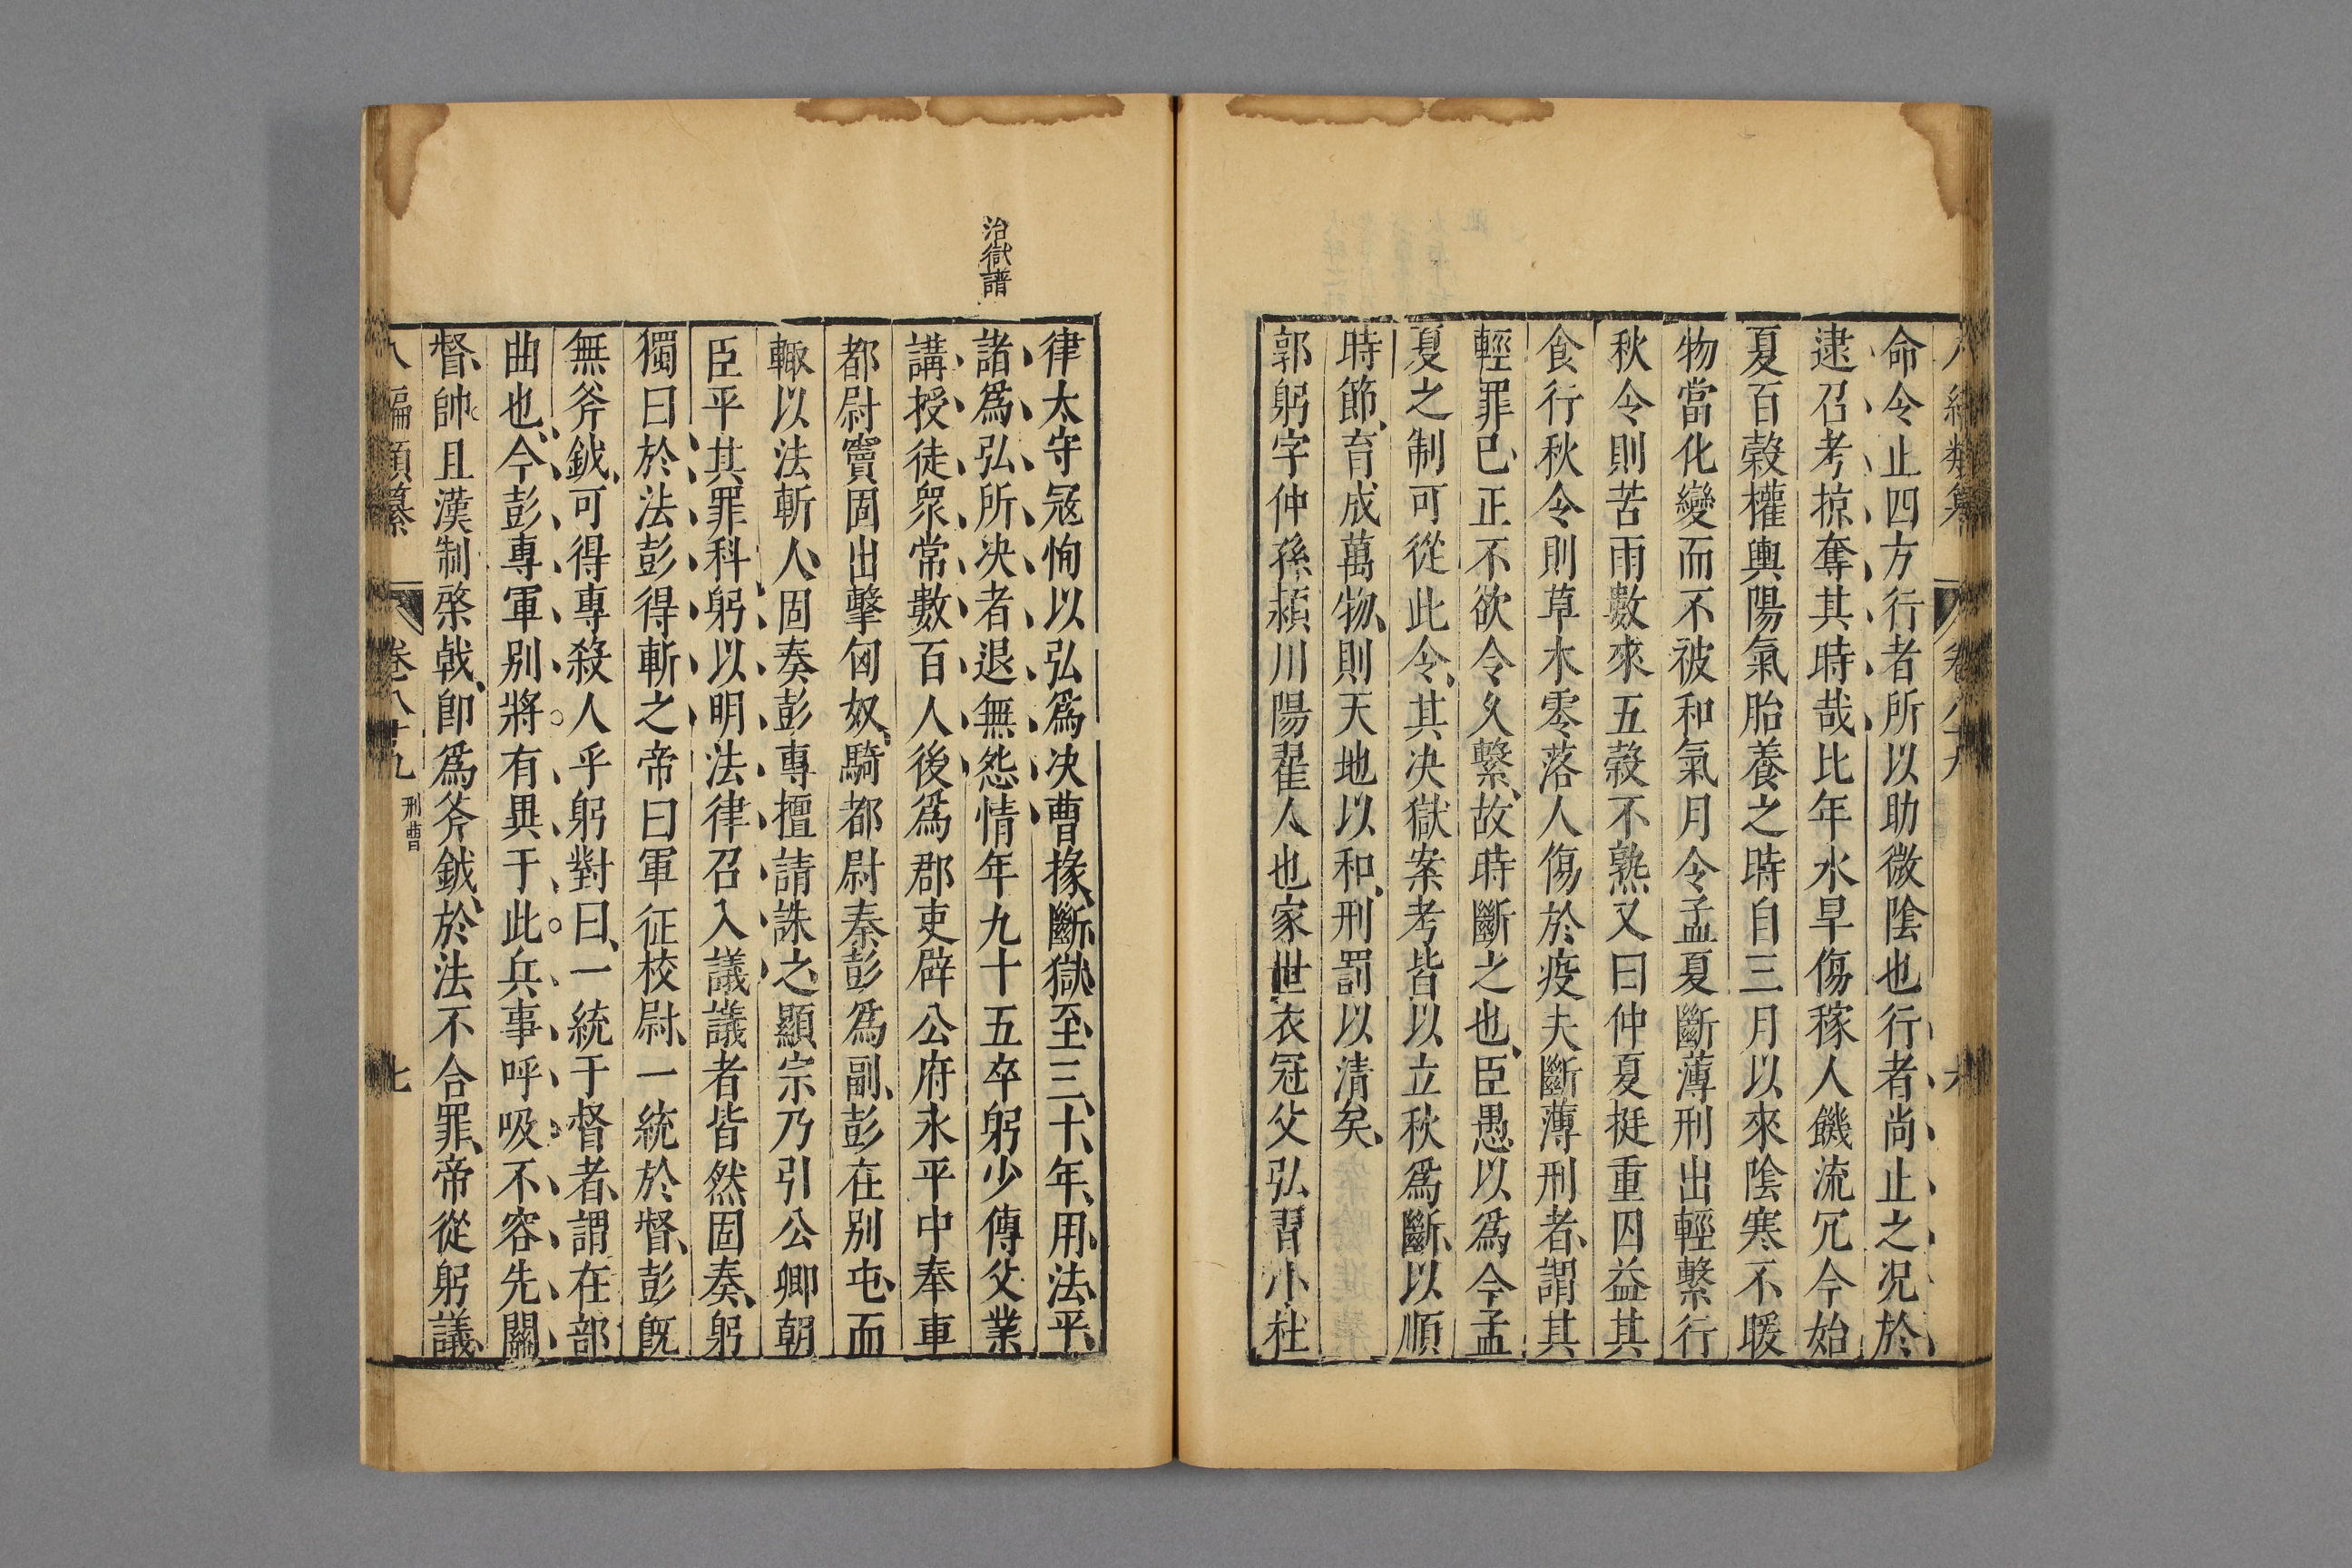 命令止四方行者所以助微陰也行者尚止之况於
逮召考掠奪其時哉比年水旱傷稼人饑流冗今始
夏百穀權輿陽氣胎養之時自三月以來陰寒不暖
物當化變而不被和氣月令孟夏斷薄刑出輕繫行
秋令則苦雨數來五穀不熟又曰仲夏挺重囚益其
食行秋令則草木零落人傷於疫夫斷薄刑者謂其
輕罪已正不欲令久繫故時斷之也臣愚以爲今孟
夏之制可從此令其決獄案考皆以立秋爲斷以順
時節育成萬物則天地以和刑罰以清矣
郭躬字仲孫潁川陽翟人也家世衣冠父弘習小杜
治獄譜
律太守寇恂以弘爲决曹掾斷獄至三十年用法平
諸爲弘所决者退無怨情年九十五卒躬少傳父業
講授徒衆常數百人後爲郡吏辟公府永平中奉車
都尉竇固出擊匈奴騎都尉秦彭爲副彭在别屯而
輙以法斬人固奏彭專擅請誅之顯宗乃引公卿朝
臣平其罪科躬以明法律召入議議者皆然固奏躬
獨曰於法彭得斬之帝曰軍征校尉一統於督彭旣
無斧鉞可得專殺人乎躬對曰一統于督者謂在部
曲也今彭專軍别將有異于此兵事呼吸不容先關
督帥且漢制棨戟卽爲斧鉞於法不合罪帝從躬議
八編類纂 卷八十九 刑曹 七